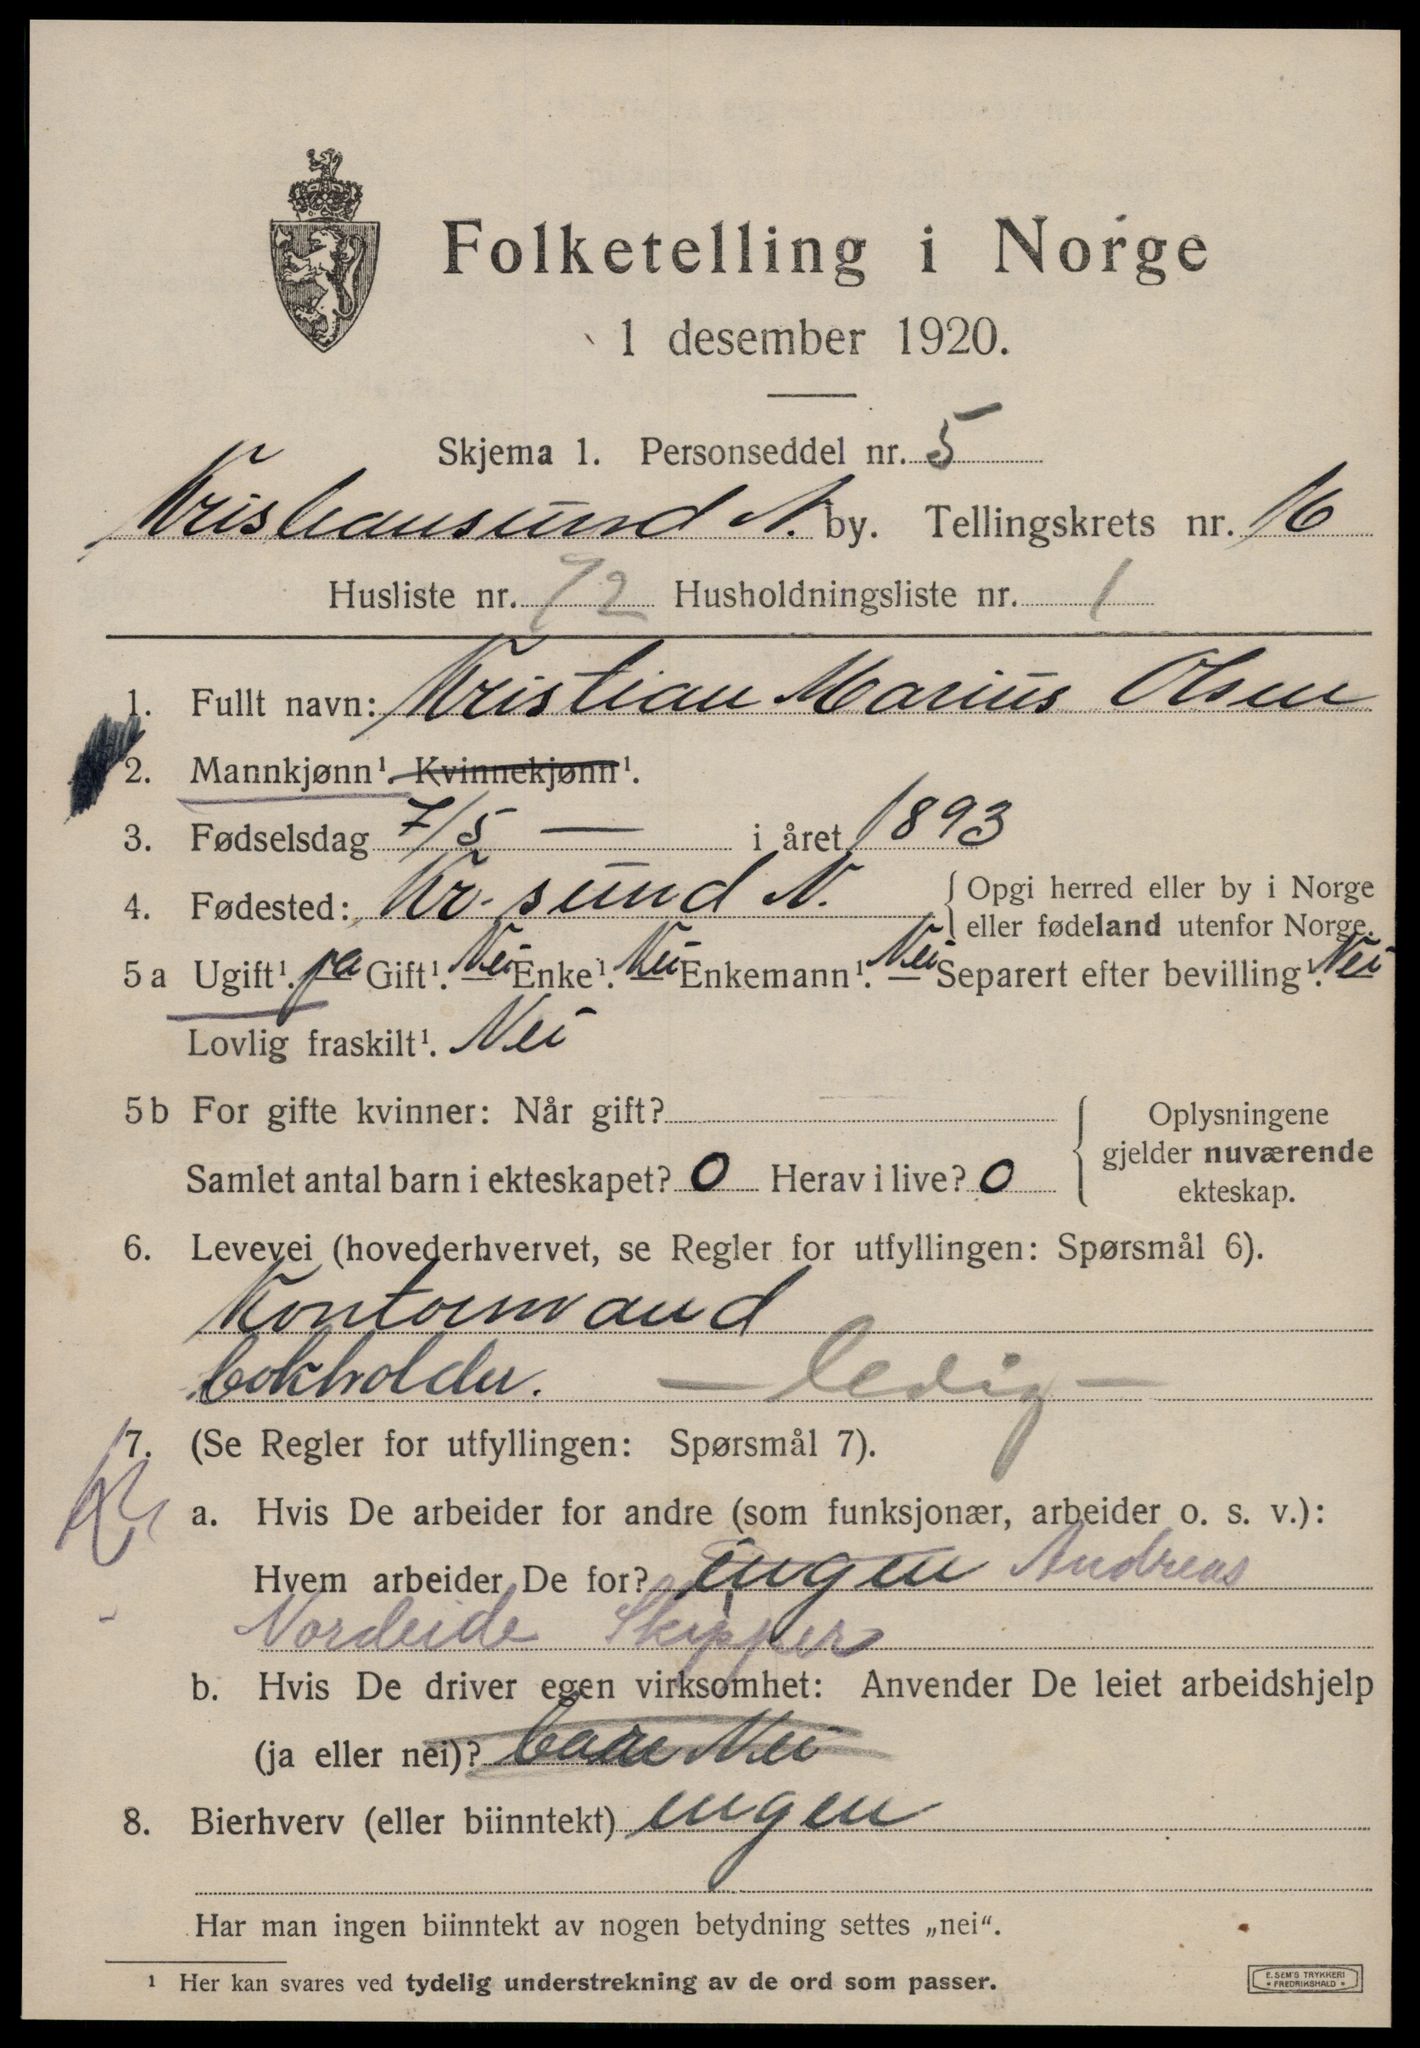 Folketelling i Norge
1 desember 1920.
Skjema 1. Personseddel nr. 5
Kristiansund N. by. Tellingskrets nr. 16
Husliste nr. 72 Husholdningsliste nr. 1
1. Fullt navn: Kristian Marius Olsen
2. Mannkjønn¹. Kvinnekjønn¹.
3. Fødselsdag 7/5 — i året 1893
4. Fødested: Kr.sund N. { Opgi herred eller by i Norge
eller fødeland utenfor Norge.
5 a Ugift¹. ja Gift¹. Nei Enke¹. Nei Enkemann¹. Nei Separert efter bevilling¹. Nei
Lovlig fraskilt¹. Nei
5 b For gifte kvinner: Når gift?
Samlet antal barn i ekteskapet? 0 Herav i live? 0
Oplysningene
gjelder nuværende
ekteskap.
6. Levevei (hovederhvervet, se Regler for utfyllingen: Spørsmål 6).
Kontormand
bokholder. — ledig —
7. (Se Regler for utfyllingen: Spørsmål 7).
a. Hvis De arbeider for andre (som funksjonær, arbeider o. s. v.):
Hvem arbeider De for? ingen Andreas
Nordeide Skipper
b. Hvis De driver egen virksomhet: Anvender De leiet arbeidshjelp
(ja eller nei)? bare Nei
8. Bierhverv (eller biinntekt) ingen
Har man ingen biinntekt av nogen betydning settes „nei“.
¹ Her kan svares ved tydelig understrekning av de ord som passer.
E. SEM'S TRYKKERI
* FREDRIKSHALD *